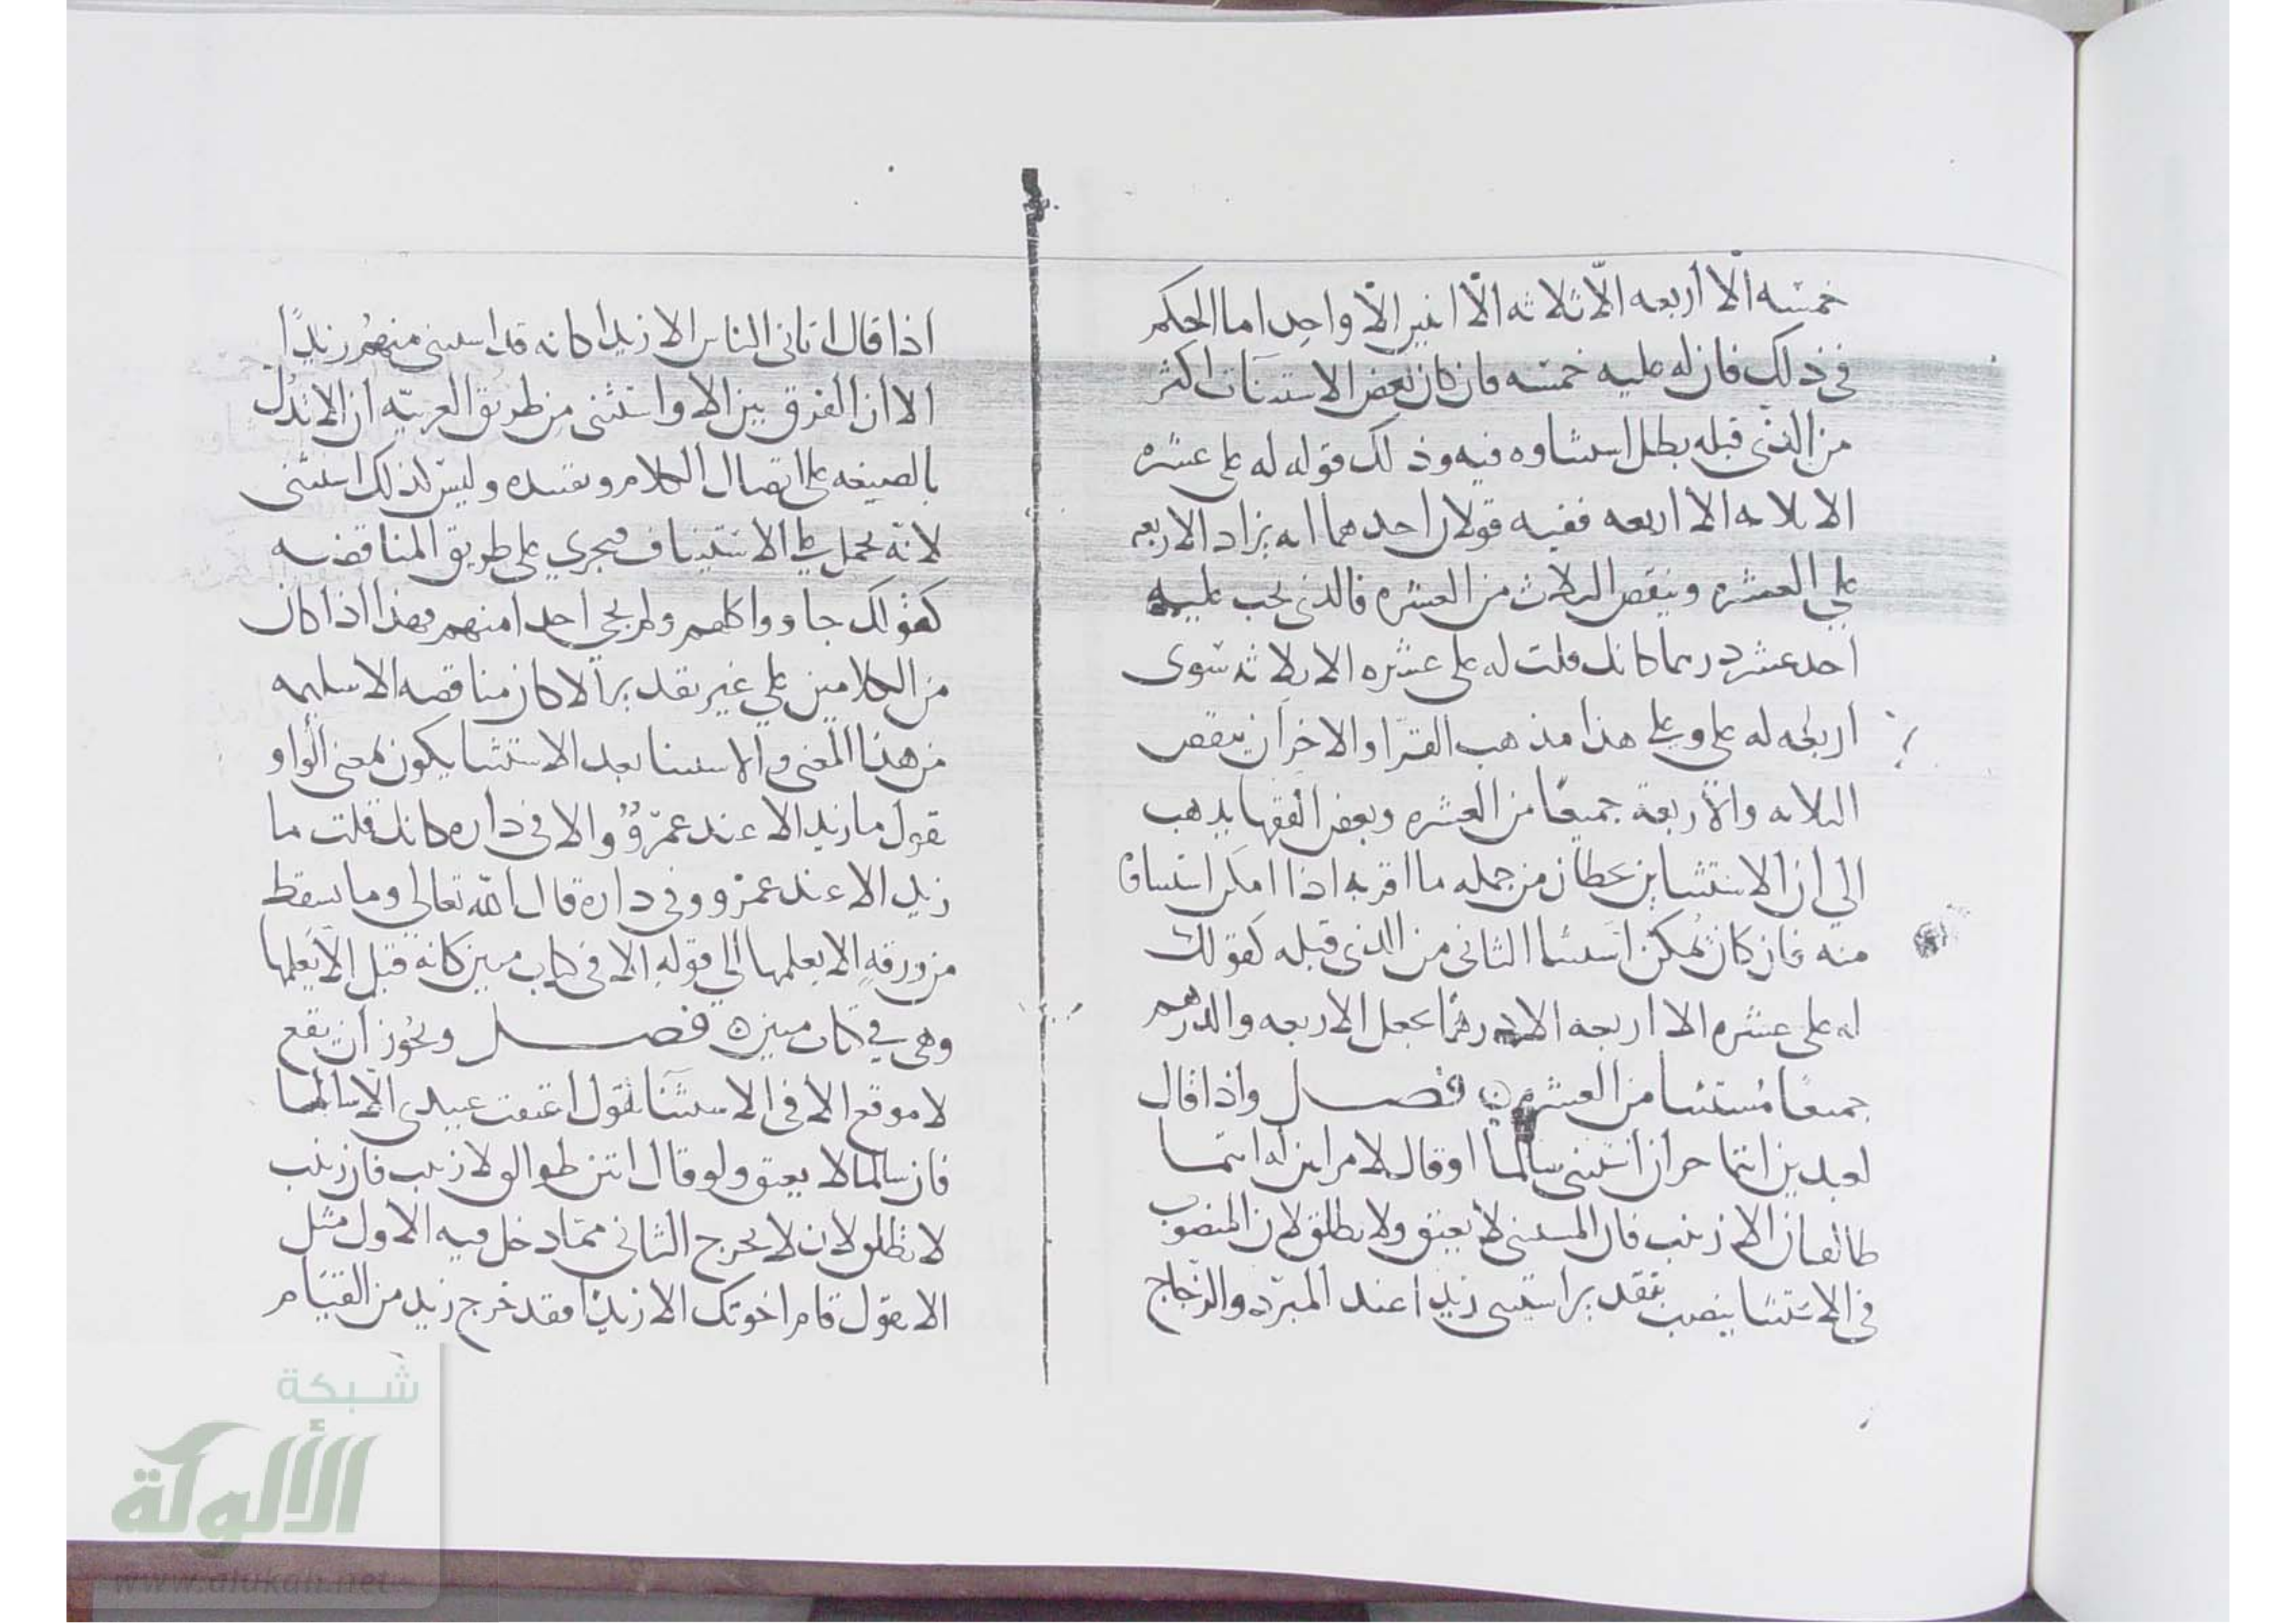 خمسه الا أربعه الّا ثلاثه الّا اثنين الّا واحدا اما الحكم
في ذلك فان له عليه خمسه فان كان بعض الاستثنآت اكثر
من الذى قبله بطل استثناوه فيه وذلك قوله له على عشره
الا ثلاثه الا اربعه ففيه قولان احدهما انه يزاد الاربعه
على العشره وينقص الثلاث من العشره فالذى يجب عليه
احد عشر درهما كانك قلت له على عشره الا ثلاثه سوى
اربعه له على وعلى هذا مذهب الفرّا والاخر ان ينقص
الثلاثه والأربعة جميعًا من العشره وبعض الفقها يذهب
الي ان الاستثناين يحطان من جمله ما اقر به اذا امكن استثناؤ
منه فان كان يُمكن استثنا الثانى من الذى قبله كقولك
له على عشره الا اربعه الا درهمًا يجعل الاربعه والدرهم
جميعًا مُستثنا من العشره فصل واذا قال
لعبدين انتما حران استثنى سالمًا او قال لامراتين له انتما
طالقان الا زينب فان المستثنى لا يعتق ولا يطلق لان المنصوب
في الاستثنا ينصب بتقدير استثنى زيدا عند المبرّد والزجّاج
اذا قال اتانى الناس الا زيدا كانه قد استثنى منهم زيدًا
الا أن الفرق بين الا واستثنى من طريق العربيّه ان الا تدُل
بالصيغه على اتصال الكلام وتفسده وليس كذلك استثنى
لانه يحمل على الاستيناف فيجرى على طريق المناقضه
كقولك جاووا كلهم ولم يجى احدا منهم فهذا اذا كان
من الكلامين على غير تقدير الا كان مناقضه الا سليمه
من هذا المعنى والاستثنا بعد الاستثنا يكون بمعنى الواو
يقول ما زيد الا عند عمرٍو والا فى داره كانك قلت ما
زيد الا عند عمرو وفى داره قال الله تعالى وما تسقط
من ورقهٍ الا يعلمها الى قوله الا فى كتاب مبين كانه قيل الا يعلمها
وهى في كتاب مبين فصل ويجوز أن يقع
لا موقع الا فى الاستثنا تقول اعتقت عبيدى الا سالما
فان سالما لا يعتق ولو قال انتن طوالق لا زينب فان زينب
لا تطلق لان لا يخرج الثانى ممّا دخل فيه الاول مثل
الا تقول قام اخوتك الا زيدًا فقد خرج زيد من القيام
شبكة
الألوكة
www.alukah.net